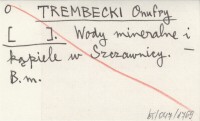 O TREMBECKI Onufry
[ ]. Wody mineralne i
kąpiele w Szczawnicy. –
B.m.